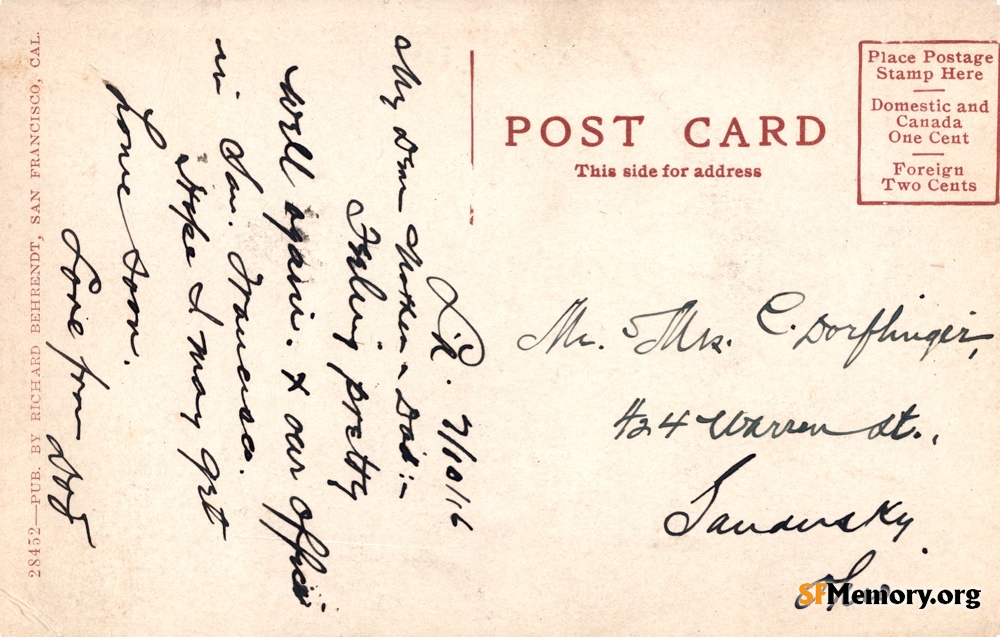 28452—PUB. BY RICHARD BEHRENDT, SAN FRANCISCO, CAL.
7/10/16
My Dear Mother & Dad:-
Feeling pretty
well again. & our office
in San. Francisco.
Hope I may get
home soon.
Love from
POST CARD
This side for address
Place Postage
Stamp Here
Domestic and
Canada
One Cent
Foreign
Two Cents
Mr. & Mrs. C. Dorflinger,
424 Warren St.,
Sandusky
Ohio
SFMemory.org